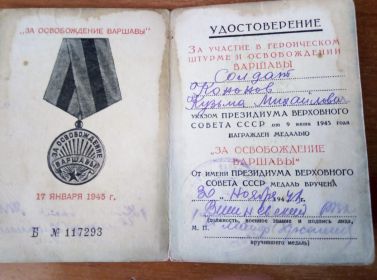 „ЗА ОСВОБОЖДЕНИЕ ВАРШАВЫ"
ЗА ОСВОБОЖДЕНИЕ
ВАРШАВЫ
17 ЯНВАРЯ 1945 г.
Б № 117293
УДОСТОВЕРЕНИЕ
ЗА УЧАСТИЕ В ГЕРОИЧЕСКОМ
ШТУРМЕ И ОСВОБОЖДЕНИИ
ВАРШАВЫ
Солдат
Кононов
Кузьма Михайлович
УКАЗОМ ПРЕЗИДИУМА ВЕРХОВНОГО
СОВЕТА СССР от 9 июня 1945 года
НАГРАЖДЕН МЕДАЛЬЮ
„ЗА ОСВОБОЖДЕНИЕ
ВАРШАВЫ"
От ИМЕНИ ПРЕЗИДИУМА ВЕРХОВНОГО
СОВЕТА СССР МЕДАЛЬ ВРУЧЕНА
30 Ноября 194
(должность, военное звание и подпись лица,
М. П.
вручившего медаль)